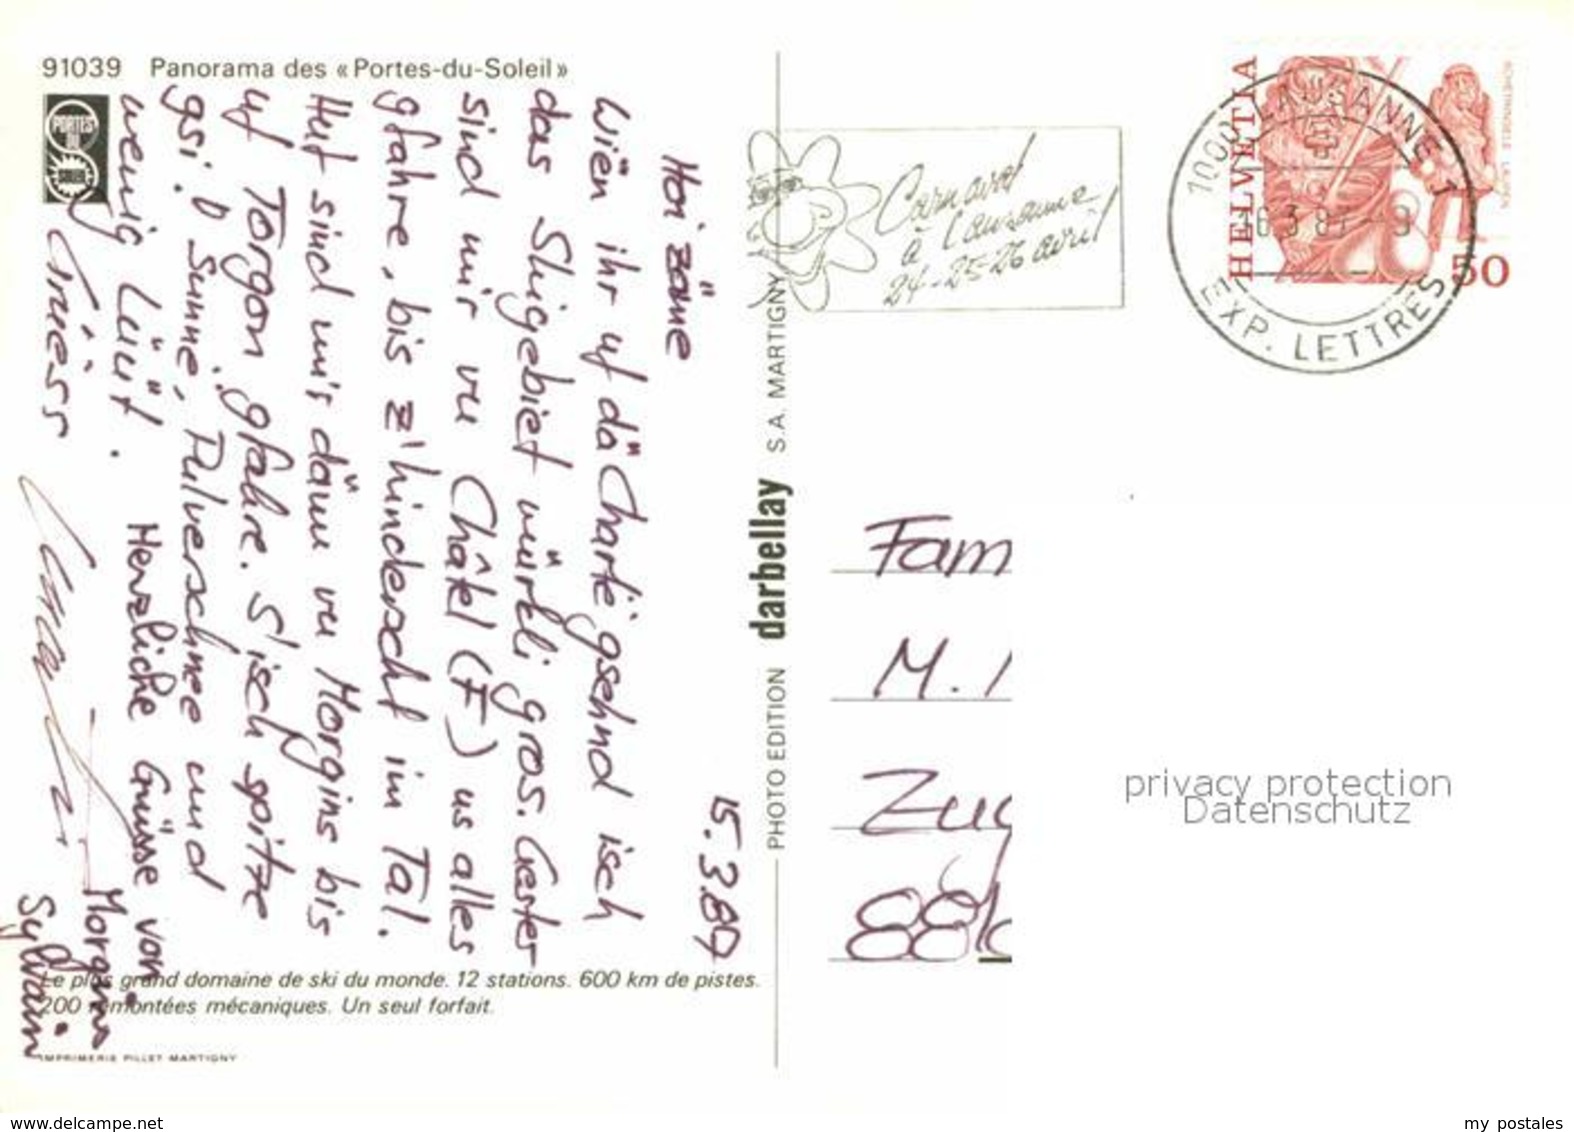 91039 Panorama des «Portes-du-Soleil»
PORTES
DU
SOLEIL
15.3.87
Hoi zäme
Wiën ihr uf dä Chartë gsehnd isch
das Skigebiet würkli gros. Gester
sind mir vu Châtel (F) us alles
gfahre, bis z'hinderscht im Tal.
Hut sind mir dänn vu Morgins bis
uf Torgon gfahre. S'isch spitze
gsi. D Sunne, Pulverschnee und
wenig Lüüt.
Herzliche Grüsse von
Morgins
Sylvain
Griess
Le plus grand domaine de ski du monde. 12 stations. 600 km de pistes.
200 remontées mécaniques. Un seul forfait.
IMPRIMERIE PILLET MARTIGNY
PHOTO EDITION darbellay S.A. MARTIGNY
Carnaval
à Lausanne
24-25-26 avril
1000 LAUSANNE 1
16.3.87-9
EXP. LETTRES
HELVETIA
50
Fam
M.
Zug
88
privacy protection
Datenschutz
www.delcampe.net
my postales